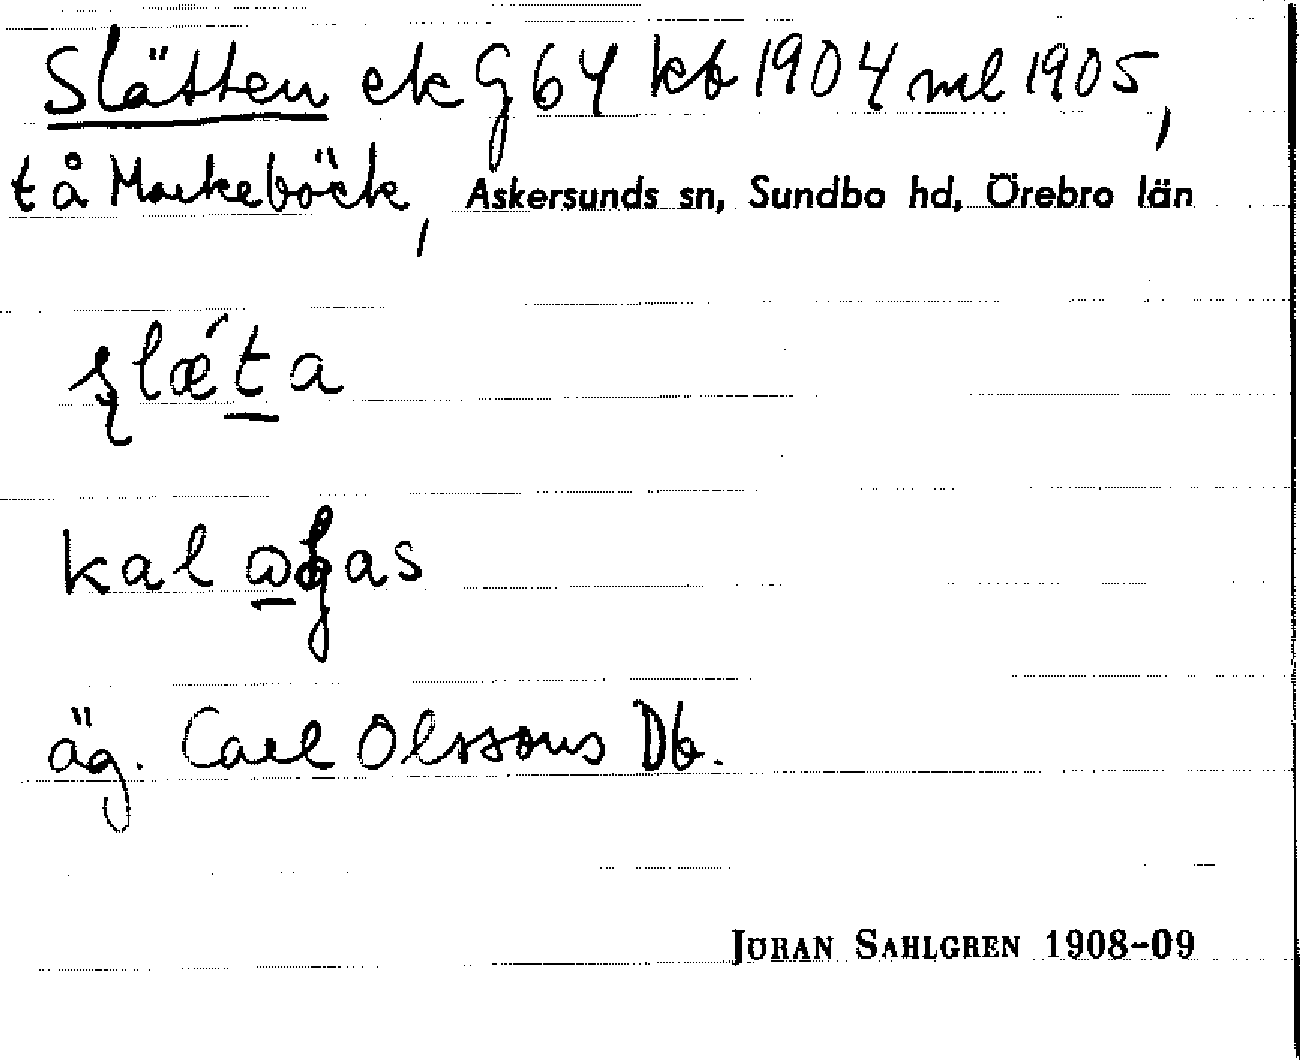 Slätten ek G 64 kb 1904 ml 1905,
t å Markebäck, Askersunds sn, Sundbo hd, Örebro län
slǽta
kal
as
äg. Carl Olssons Db.
JÖRAN SAHLGREN 1908-09